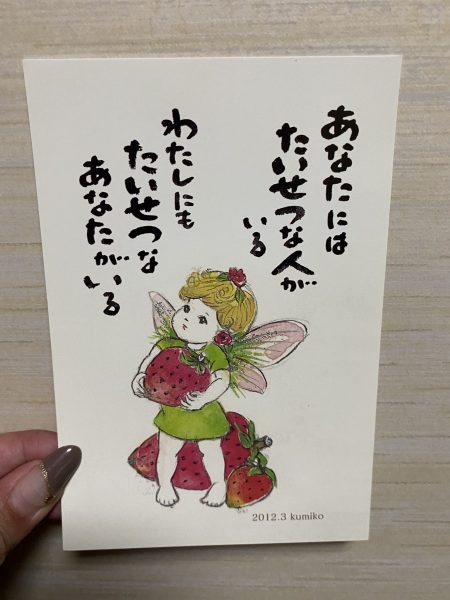 あなたには
たいせつな人が
いる
わたしにも
たいせつな
あなたがいる
2012.3 kumiko